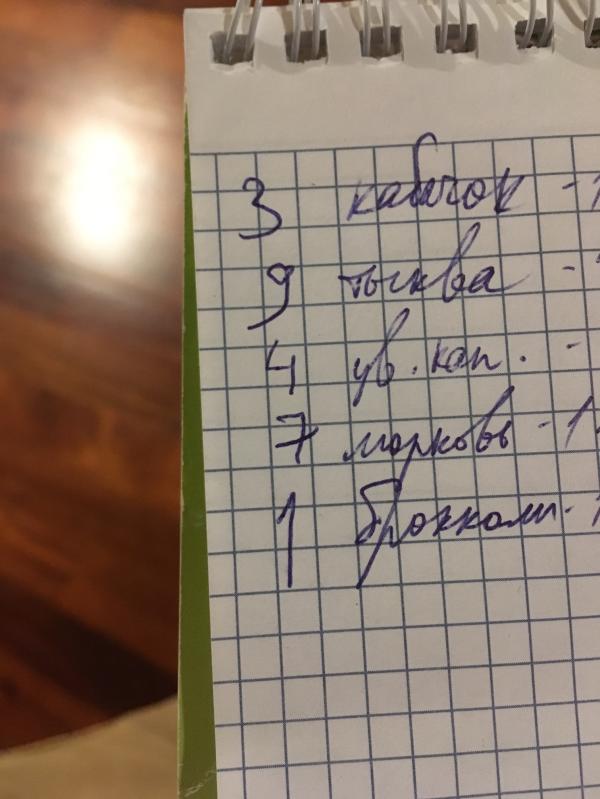 3 кабачок -1
9 тыква -
4 цв. кап. -
7 морковь -1
1 брокколи -